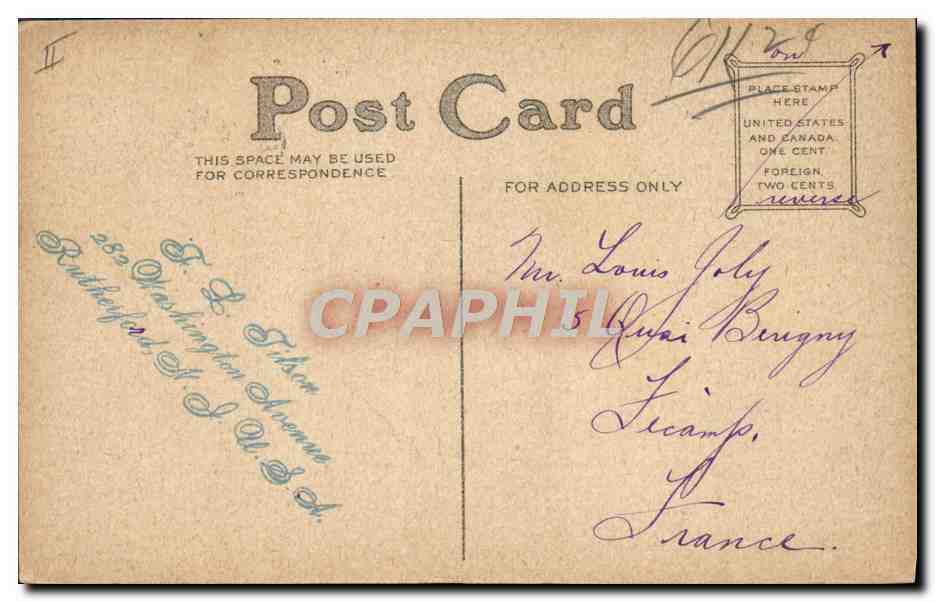 II
6112d
Post Card
THIS SPACE MAY BE USED
FOR CORRESPONDENCE
FOR ADDRESS ONLY
on
PLACE STAMP
HERE
UNITED STATES
AND CANADA.
ONE CENT.
FOREIGN,
TWO CENTS.
reverse
F. L. Tilson
282 Washington Avenue
Rutherford, N. J. U. S. A.
Mr. Louis Joly
5 Quai Berigny
Fécamp.
France.
CPAPHIL